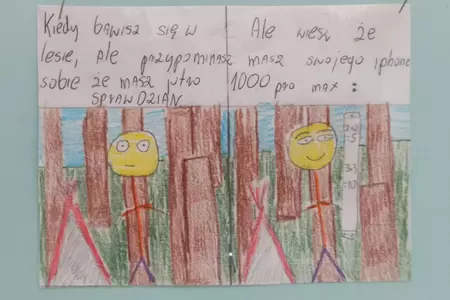 Kiedy bawisz się w
lesie, ale przypominasz
sobie że masz jutro
SPRAWDZIAN
Ale wiesz że
masz swojego iphone
1000 pro max :